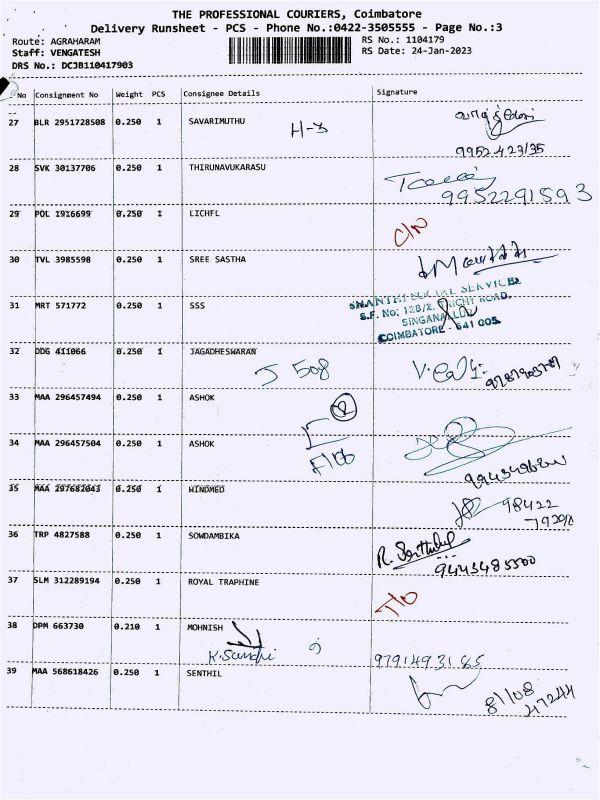 THE PROFESSIONAL COURIERS, Coimbatore
Delivery Runsheet - PCS - Phone No.:0422-3505555 - Page No.:3
Route: AGRAHARAM
RS No.: 1104179
Staff: VENGATESH
RS Date: 24-Jan-2023
DRS No.: DCJB110417903
No Consignment No Weight PCS Consignee Details Signature
27 BLR 2951728508 0.250 1 SAVARIMUTHU H-3
28 SVK 30137706 0.250 1 THIRUNAVUKARASU
9952291593
29 POL 1916699 0.250 1 LICHFL C/N
30 TVL 3985598 0.250 1 SREE SASTHA
31 MRT 571772 0.250 1 SSS
SHANTHI SOCIAL SERVICES
S.F. No: 128/2, TRICHY ROAD,
SINGANALLUR
COIMBATORE - 641 005.
32 DDG 411066 0.250 1 JAGADHESWARAN
J 508
33 MAA 296457494 0.250 1 ASHOK
34 MAA 296457504 0.250 1 ASHOK
35 MAA 297682043 0.250 1 HINDMED
98422
36 TRP 4827588 0.250 1 SOWDAMBIKA
R. Senthilvel
9443485500
37 SLM 312289194 0.250 1 ROYAL TRAPHINE T/O
38 DPM 663730 0.210 1 MOHNISH
9791493185
39 MAA 568618426 0.250 1 SENTHIL
81108
47244